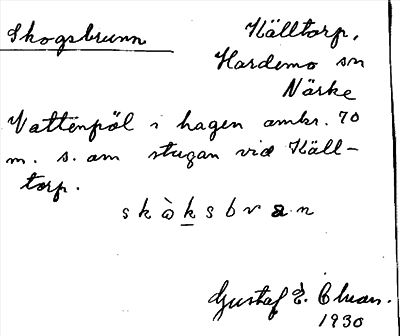 Skogsbrunn
Källtorp,
Hardemo sn
Närke
Vattenpöl i hagen ombr. 70
m. s. om stugan vid Käll-
torp.
s k å̀ k s b r a n
Gustaf E.
1930